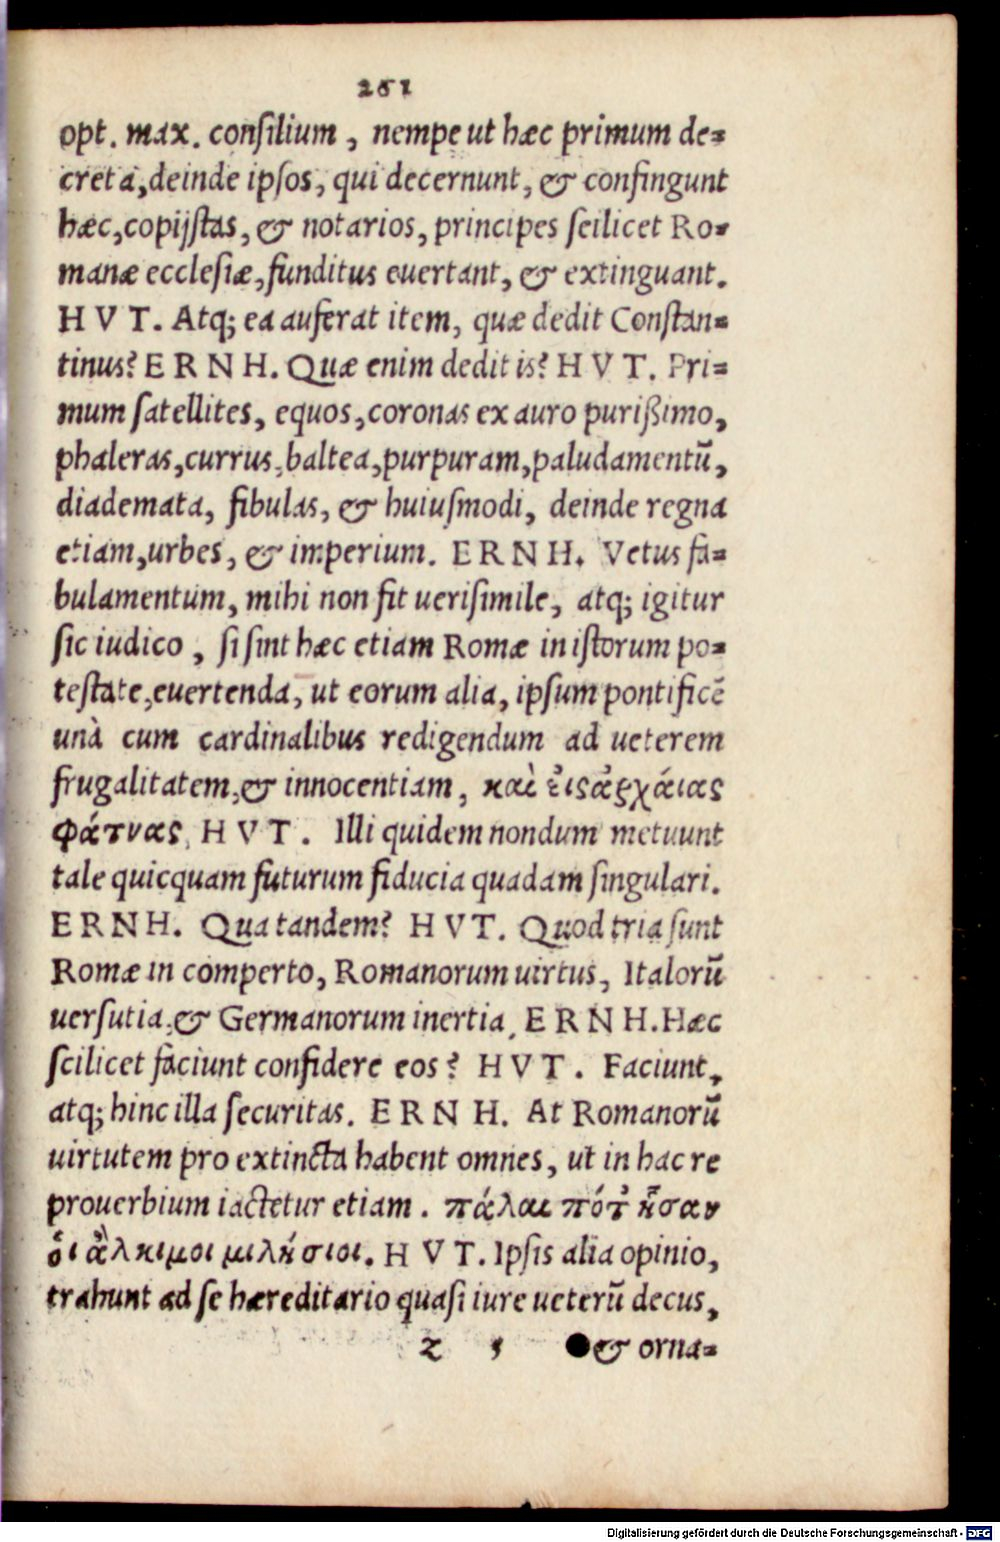 261
opt. max. consilium, nempe ut hæc primum de=
creta, deinde ipſos, qui decernunt, & confingunt
hæc, copijſtas, & notarios, principes ſcilicet Ro=
manæ eccleſiæ, funditus euertant, & extinguant.
H V T. Atq; ea auferat item, quæ dedit Conſtan=
tinus? E R N H. Quæ enim dedit is? H V T. Pri=
mum ſatellites, equos, coronas ex auro purißimo,
phaleras, currus, baltea, purpuram, paludamentū,
diademata, fibulas, & huiuſmodi, deinde regna
etiam, urbes, & imperium. E R N H. Vetus fa=
bulamentum, mihi non fit ueriſimile, atq; igitur
ſic iudico, ſi ſint hæc etiam Romæ in iſtorum po=
teſtate, euertenda, ut eorum alia, ipſum pontificē
unà cum cardinalibus redigendum ad ueterem
frugalitatem, & innocentiam, καὶ ἐις ἀρχάιας
φάτνας, H V T. Illi quidem nondum metuunt
tale quicquam futurum fiducia quadam ſingulari.
E R N H. Qua tandem? H V T. Quod tria ſunt
Romæ in comperto, Romanorum uirtus, Italorū
uerſutia, & Germanorum inertia, E R N H. Hæc
ſcilicet faciunt confidere eos? H V T. Faciunt,
atq; hinc illa ſecuritas. E R N H. At Romanorū
uirtutem pro extincta habent omnes, ut in hac re
prouerbium iactetur etiam. πάλαι πότ' ἦσαν
ὅι ἄλκιμοι μιλήσιοι. H V T. Ipſis alia opinio,
trahunt ad ſe hæreditario quaſi iure ueterū decus,
z 5 & orna=
Digitalisierung gefördert durch die Deutsche Forschungsgemeinschaft - DFG